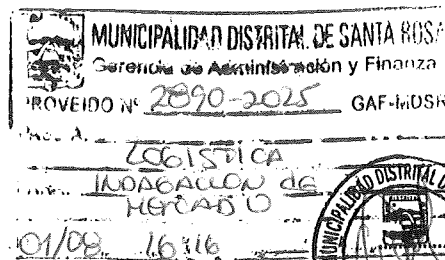 MUNICIPALIDAD DISTRITAL DE SANTA ROSA
Gerencia de Administración y Finanza
PROVEIDO Nº 2890-2025 GAF-MDSR
A
LOGISTICA
INDAGACION de
MERCADO
01/08 16:16
MUNICIPALIDAD DISTRITAL D